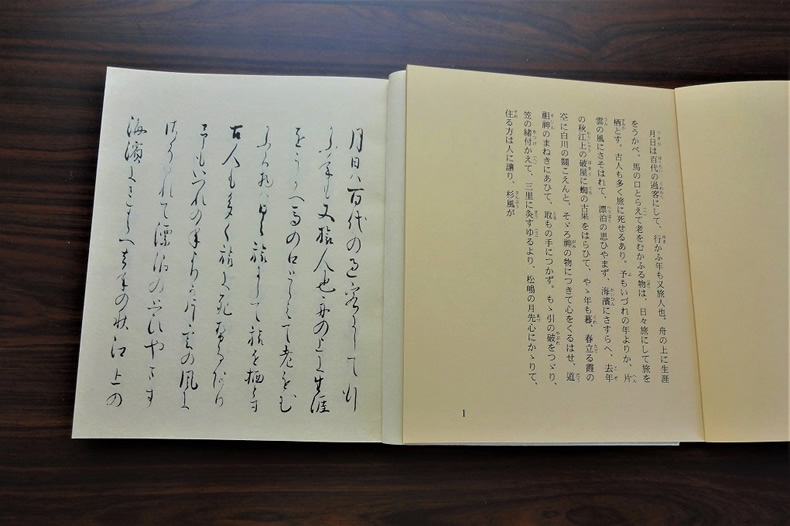 月日は百代の過客にして、行かふ年も又旅人也。舟の上に生涯
をうかべ、馬の口とらえて老をむかふる物は、日々旅にして旅を
栖とす。古人も多く旅に死せるあり。予もいづれの年よりか、片
雲の風にさそはれて、漂泊の思ひやまず、海濱にさすらへ、去年
の秋江上の破屋に蜘の古巣をはらひて、やゝ年も暮、春立る霞の
空に白川の關こえんと、そゞろ神の物につきて心をくるはせ、道
祖神のまねきにあひて、取もの手につかず。もゝ引の破をつゞり、
笠の緒付かえて、三里に灸すゆるより、松嶋の月先心にかゝりて、
住る方は人に譲り、杉風が
1
月日ハ百代の過客にして行
かふ年も又旅人也舟の上に生涯
をうかへ馬の口とらえて老をむ
かふる物ハ日々旅にして旅を栖とす
古人も多く旅に死せるあり
予もいつれの年よりか片雲の風に
さそハれて漂泊の思ひやます
海濱にさすらへ去年の秋江上の